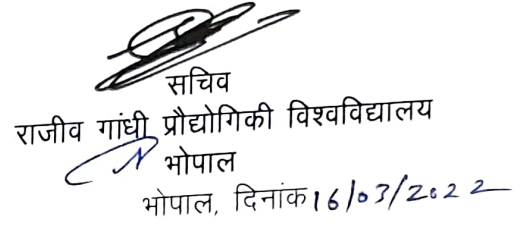 सचिव
राजीव गांधी प्रौद्योगिकी विश्वविद्यालय
भोपाल
भोपाल, दिनांक 16/03/2022